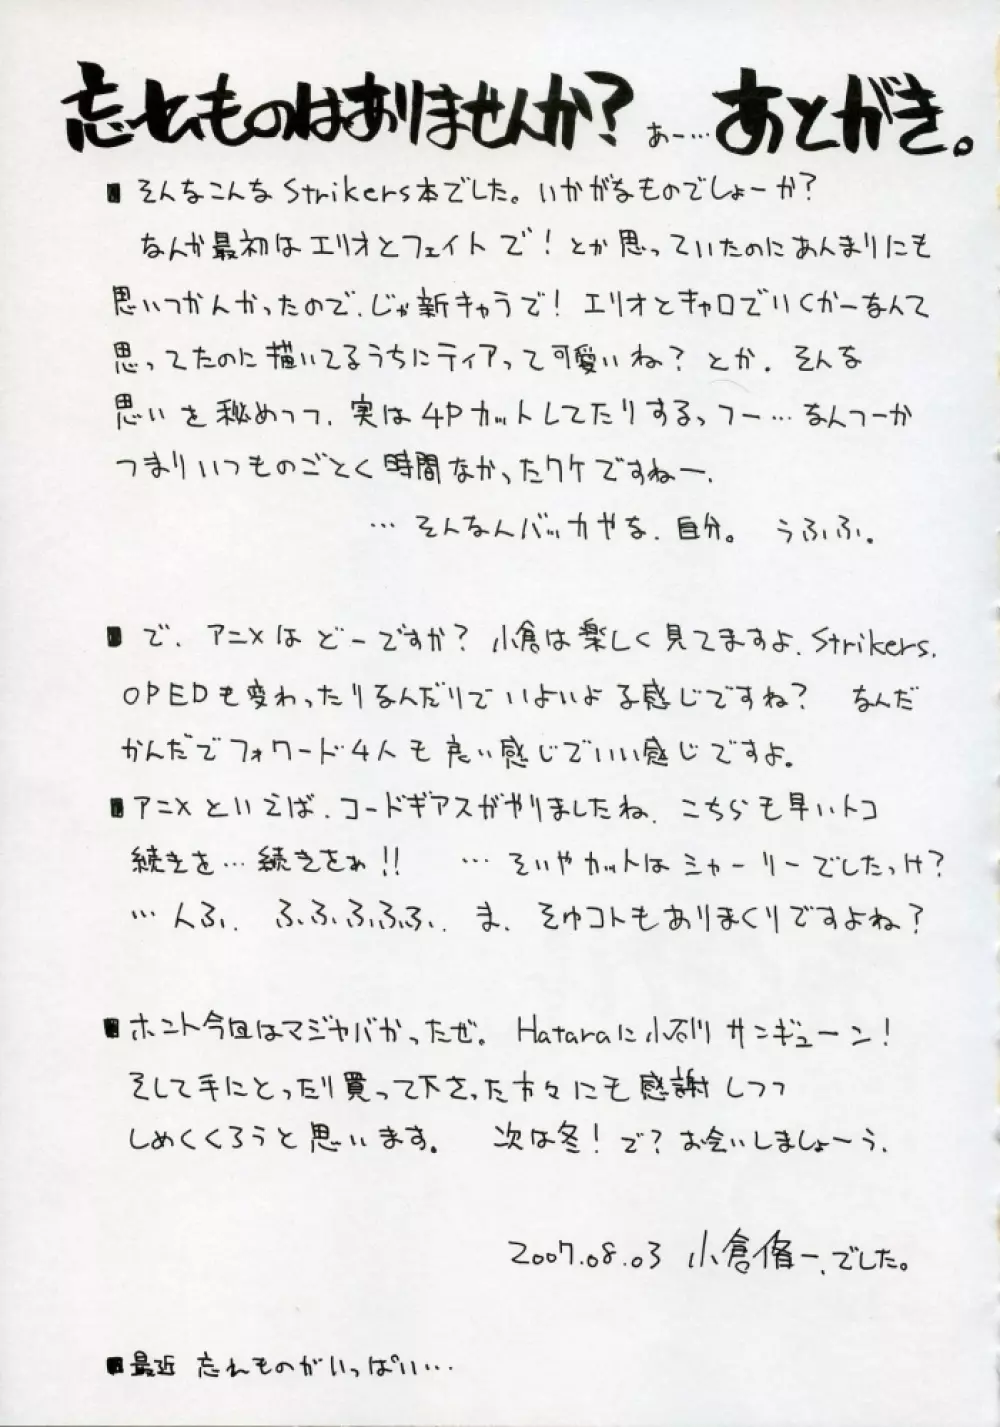 忘れものはありませんか? あー… あとがき。
■ そんなこんなStrikers本でした。いかがなものでしょーか?
なんか最初はエリオとフェイトで!とか思っていたのにあんまりにも
思いつかんかったので、じゃ新キャラで!エリオとキャロでいくかーなんて
思ってたのに描いてるうちにティアって可愛いね?とか、そんな
思いを秘めつつ、実は4Pカットしてたりするっつー…なんつーか
つまりいつものごとく時間なかったワケですねー、
…そんなんバッカやな、自分。 うふふ。
■ で、アニメはどーですか?小倉は楽しく見てますよ、Strikers.
OPEDも変わったりなんだりでいよいよな感じですね? なんだ
かんだでフォワード4人も良い感じでいい感じですよ。
■ アニメといえば、コードギアスがやりましたね、こちらも早いトコ
続きを…続きをぉ!! …そいやカットはシャーリーでしたっけ?
…んふ、 ふふふふふ、 ま、そゆコトもありまくりですよね?
■ ホント今回はマジヤバかったぜ。 Hataraに小石川サンギューン!
そして手にとったり買って下さった方々にも感謝しつつ
しめくくろうと思います。 次は冬!で?お会いしましょーう、
2007.08.03 小倉脩一、でした。
■ 最近 忘れものがいっぱい…